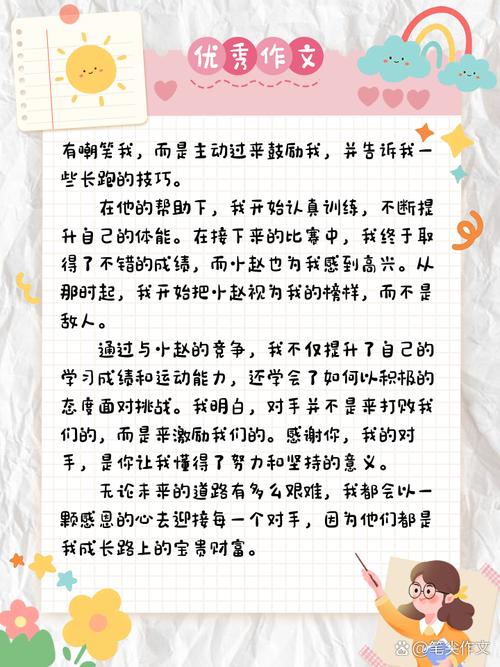 优秀作文
有嘲笑我，而是主动过来鼓励我，并告诉我一
些长跑的技巧。
在他的帮助下，我开始认真训练，不断提
升自己的体能。在接下来的比赛中，我终于取
得了不错的成绩，而小赵也为我感到高兴。从
那时起，我开始把小赵视为我的榜样，而不是
敌人。
通过与小赵的竞争，我不仅提升了自己的
学习成绩和运动能力，还学会了如何以积极的
态度面对挑战。我明白，对手并不是来打败我
们的，而是来激励我们的。感谢你，我的对
手，是你让我懂得了努力和坚持的意义。
无论未来的道路有多么艰难，我都会以一
颗感恩的心去迎接每一个对手，因为他们都是
我成长路上的宝贵财富。
@笔尖作文